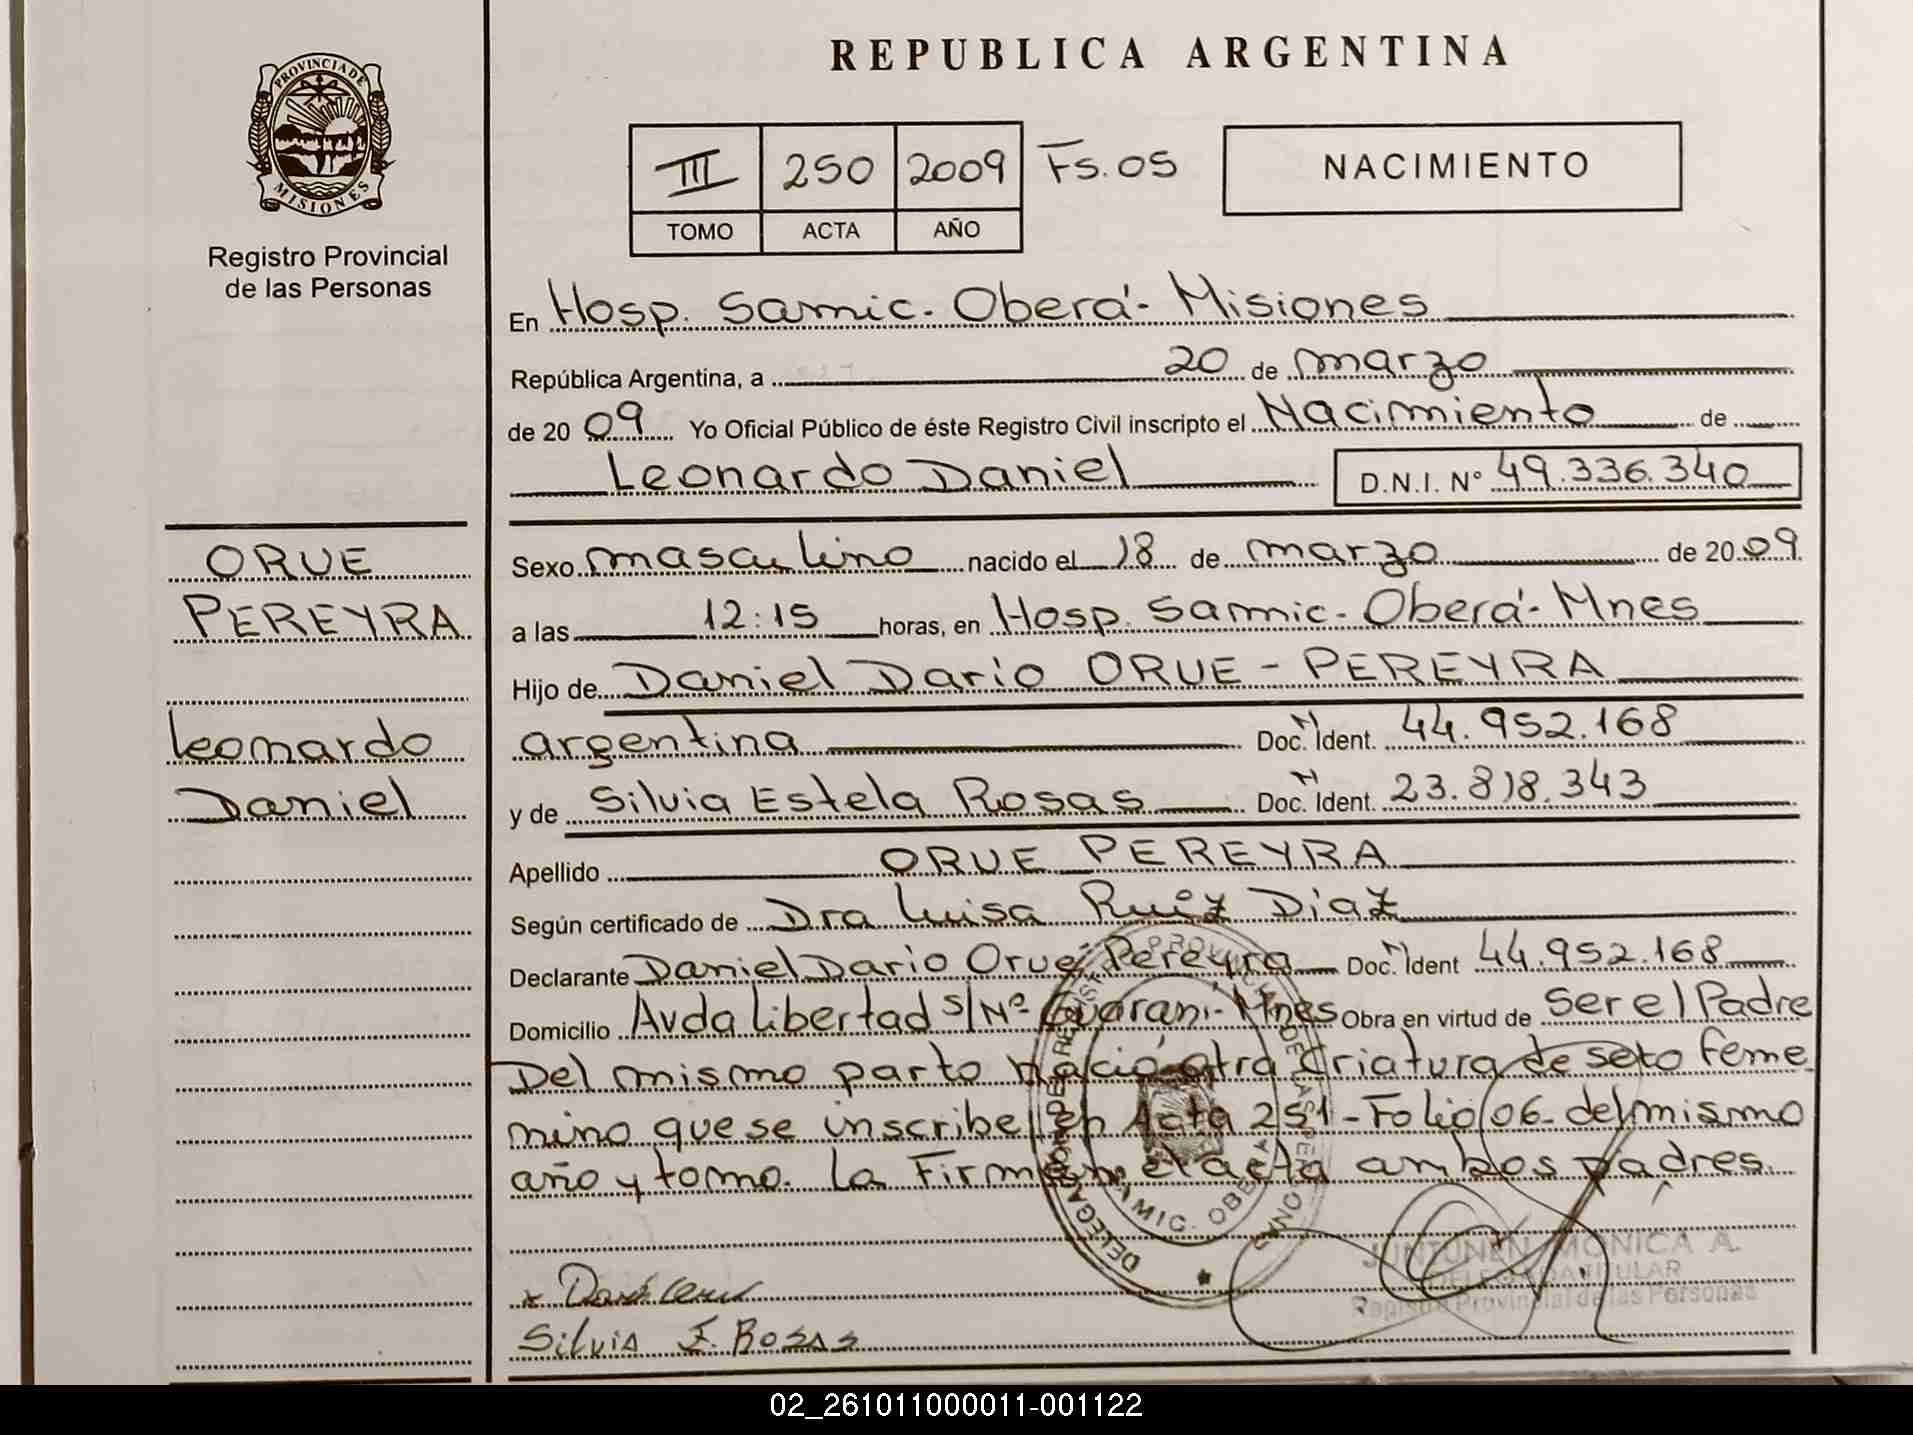 REPUBLICA ARGENTINA
PROVINCIA DE
MISIONES
Registro Provincial
de las Personas
III 250 2009 Fs. 05
TOMO ACTA AÑO
NACIMIENTO
En Hosp. Samic. Oberá - Misiones
República Argentina, a 20 de marzo
de 20 09 Yo Oficial Público de éste Registro Civil inscripto el Nacimiento de
Leonardo Daniel D.N.I. Nº 49.336.340
ORUE
PEREYRA
Leonardo
Daniel
Sexo masculino nacido el 18 de marzo de 20 09
a las 12:15 horas, en Hosp. Samic - Oberá - Mnes
Hijo de Daniel Dario ORUE - PEREYRA
argentina Doc. Ident. 44.952.168
y de Silvia Estela Rosas Doc. Ident. 23.818.343
Apellido ORUE PEREYRA
Según certificado de Dra Luisa Ruiz Diaz
Declarante Daniel Dario Orue Pereyra Doc. Ident 44.952.168
Domicilio Avda Libertad s/Nº Guarani - Mnes Obra en virtud de ser el Padre
Del mismo parto nació otra criatura de sexo feme
nino que se inscribe en Acta 251 - Folio 06 - del mismo
año y tomo. La Firman el acta ambos padres.
Silvia E. Rosas
JUNTUNEN MONICA A.
DELEGADA TITULAR
Registro Provincial de las Personas
02_261011000011-001122